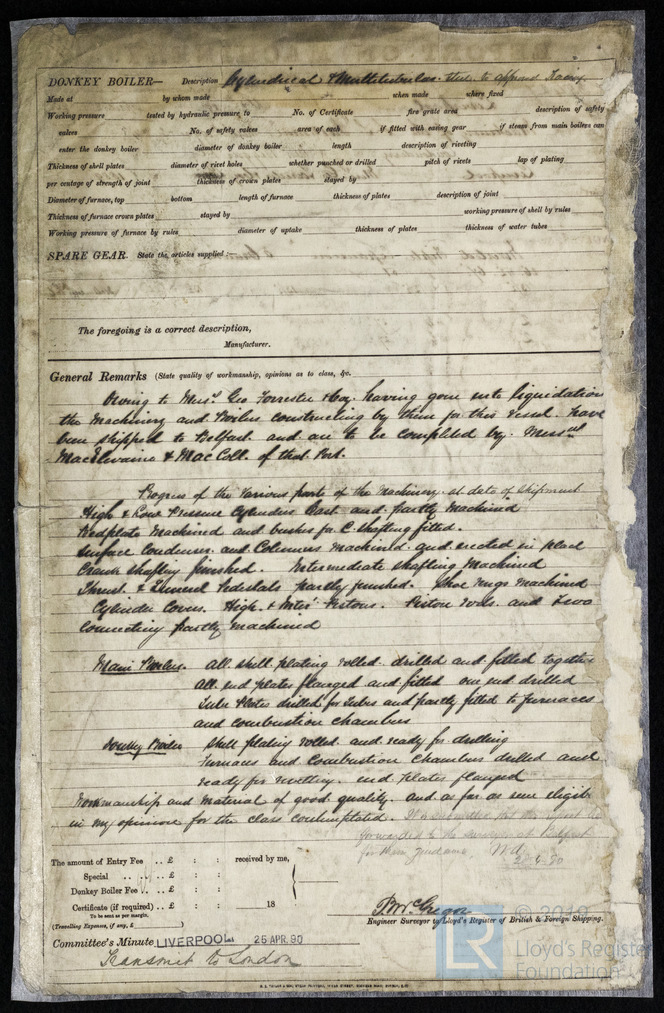 DONKEY BOILER— Description Cylindrical & Multitubular. Steel to approved Tracing
Made at by whom made when made where fixed
Working pressure tested by hydraulic pressure to No. of Certificate fire grate area description of safety
valves No. of safety valves area of each if fitted with easing gear if steam from main boilers can
enter the donkey boiler diameter of donkey boiler length description of riveting
Thickness of shell plates diameter of rivet holes whether punched or drilled pitch of rivets lap of plating
per centage of strength of joint thickness of crown plates stayed by
Diameter of furnace, top bottom length of furnace thickness of plates description of joint
Thickness of furnace crown plates stayed by working pressure of shell by rules
Working pressure of furnace by rules diameter of uptake thickness of plates thickness of water tubes
SPARE GEAR. State the articles supplied :—
The foregoing is a correct description,
Manufacturer.
General Remarks (State quality of workmanship, opinions as to class, &c.
Owing to Messrs Geo Forrester & Coy. having gone into liquidation
the Machinery and Boilers constructing by them for this Vessel. have
been shipped to Belfast. and are to be completed by. Messrs
MacIlwaine & MacColl. of that Port.
Progress of the Various parts of the Machinery. at date of Shipment
High & Low Pressure Cylinders Cast and partly machined
Bedplate Machined and bushes for C. Shafting fitted.
Surface Condenser and Columns Machined and erected in place
Crank shafting finished. Intermediate shafting Machined
Thrust & Tunnel Pedestals partly finished. Shoe rings machined
Cylinder Covers. High. & Inter Pistons. Piston rods. and Two
Connecting partly machined
Main Boilers. All shell plating rolled. drilled and fitted together
All end plates flanged and fitted one end drilled
Tube Plates drilled for Tubes and partly fitted to furnaces
and combustion chambers
Donkey Boiler Shell plating rolled. and ready for drilling
Furnaces and Combustion Chambers drilled and
ready for rivetting. end plates flanged
Workmanship and Material of good quality. and as far as seen eligible
in my opinion for the class contemplated. It is submitted that this report be
forwarded to the Surveyors at Belfast
for their guidance.
28.4.90
The amount of Entry Fee .. £ : : received by me,
Special .. .. £ : :
Donkey Boiler Fee .. .. £ : :
Certificate (if required) .. £ : : 18
To be sent as per margin.
(Travelling Expenses, if any, £ )
Engineer Surveyor to Lloyd's Register of British & Foreign Shipping.
Committee's Minute LIVERPOOL 25 APR. 90
Transmit to London
LR
Lloyd's Register
Foundation